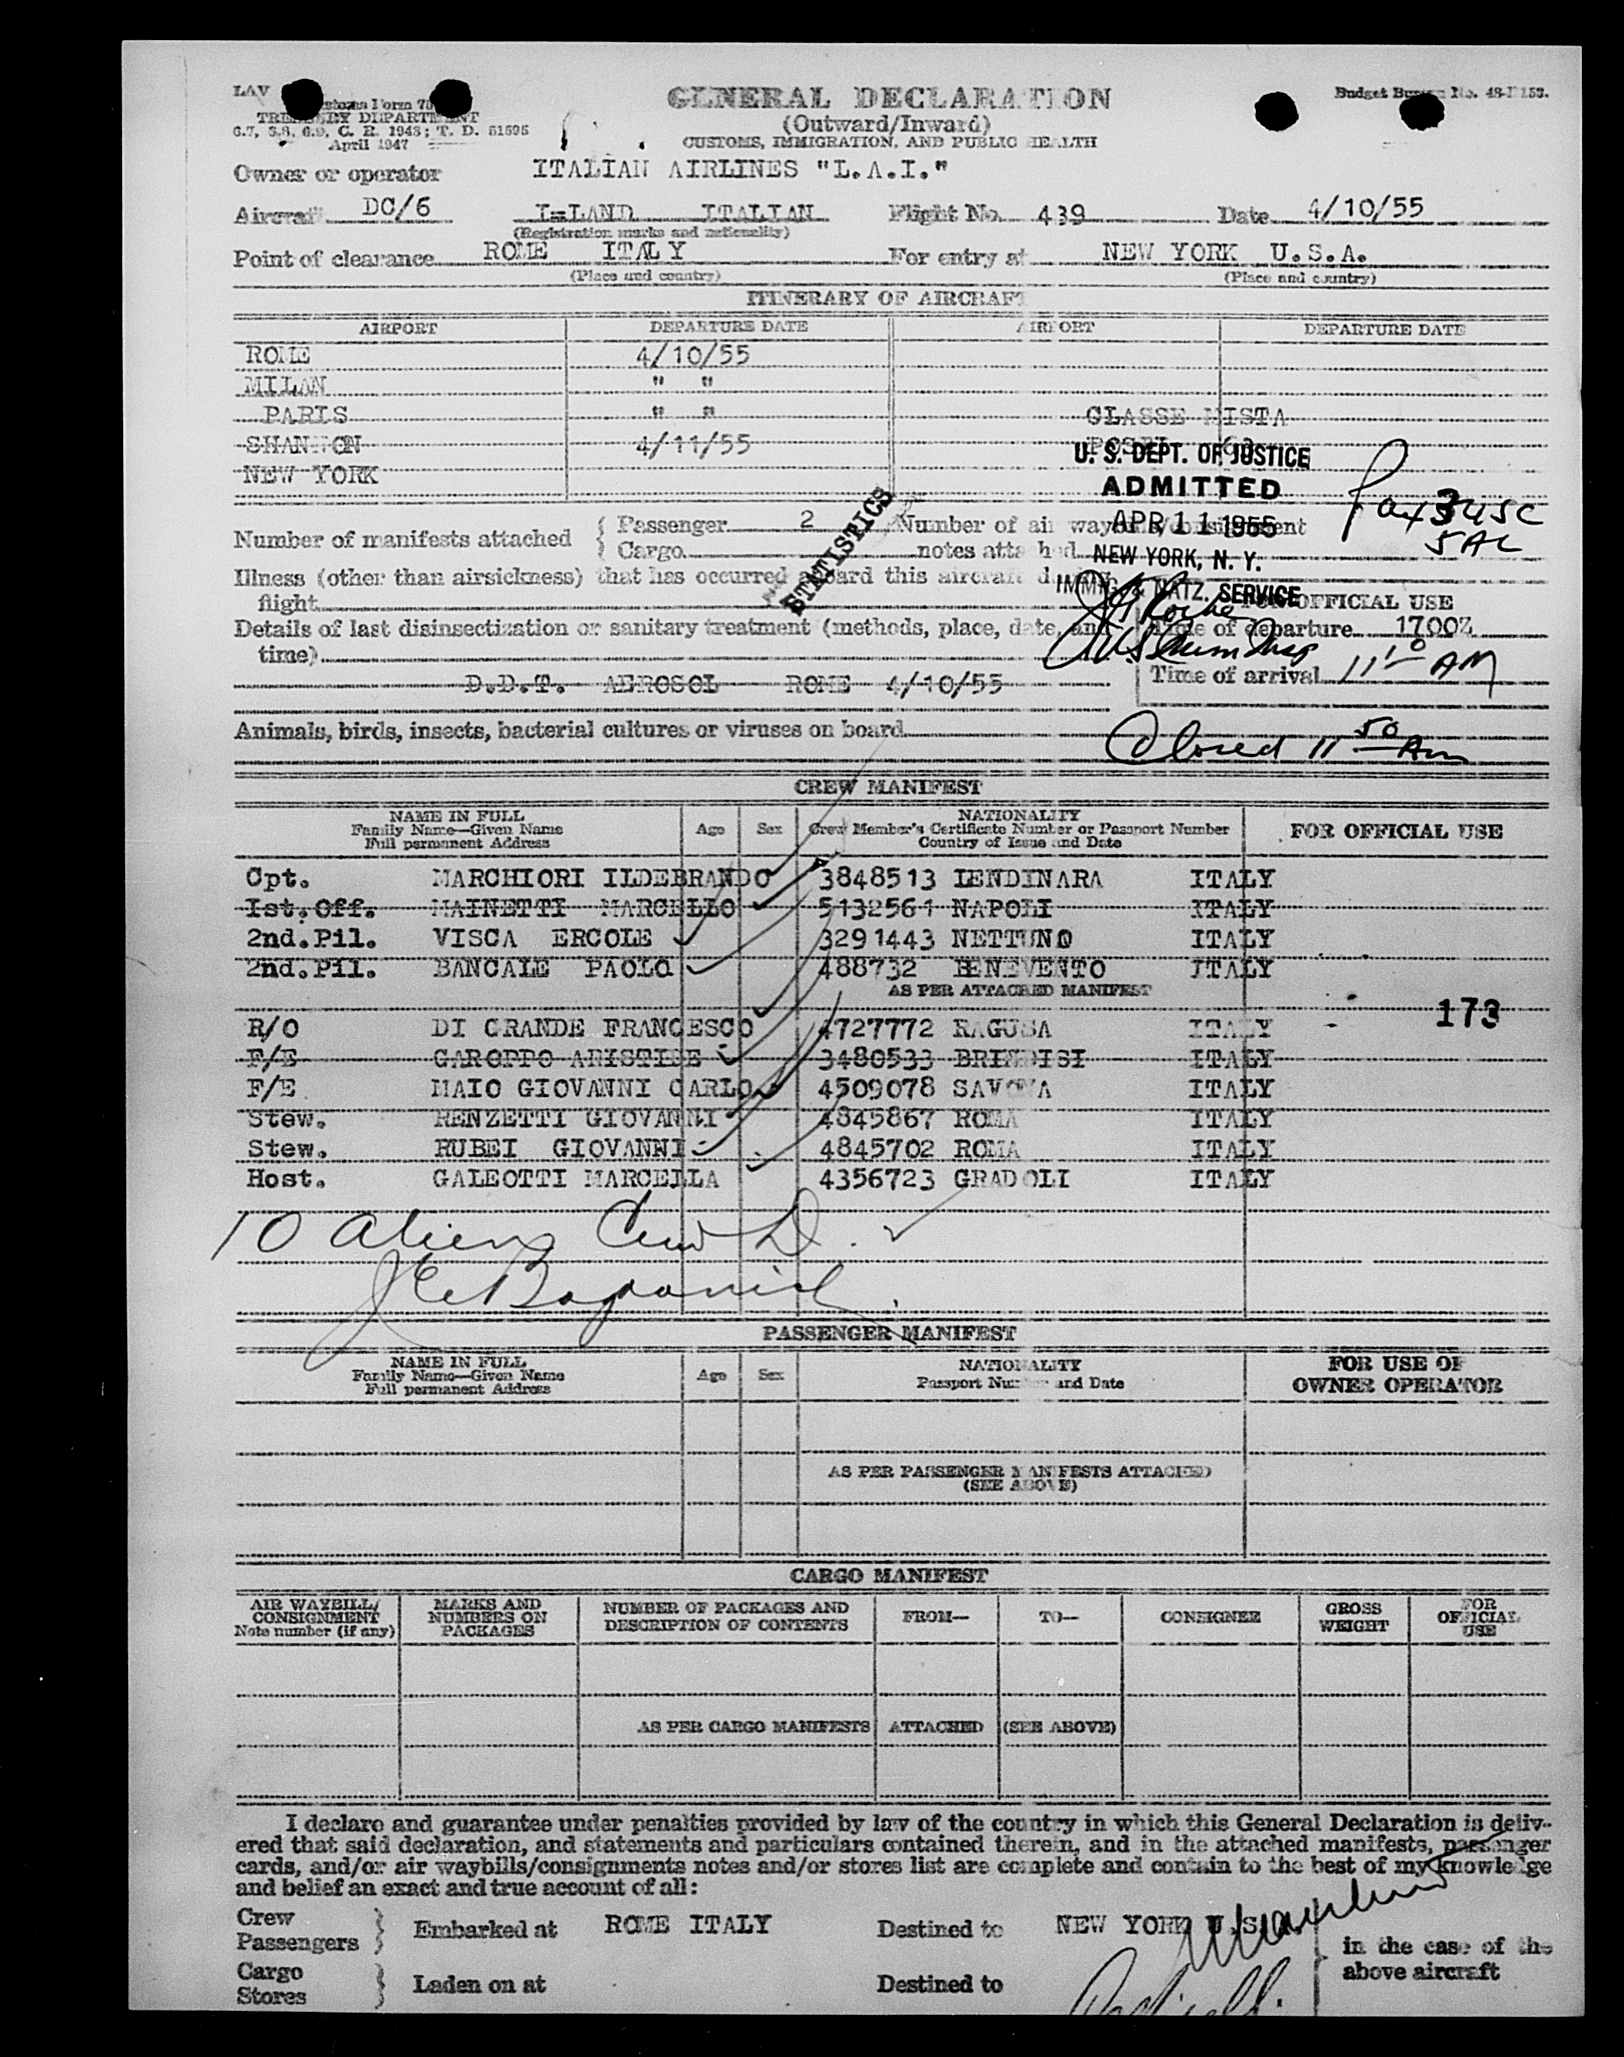 LAV
GENERAL DECLARATION
Budget Bureau No. 48-R153.
TREASURY DEPARTMENT
(Outward/Inward)
6.7, 6.8, 6.9, C. R. 1943; T. D. 51595
April 1947
CUSTOMS, IMMIGRATION, AND PUBLIC HEALTH
Owner or operator ITALIAN AIRLINES "L.A.I."
Aircraft DC/6 I-LAND ITALIAN Flight No. 439 Date 4/10/55
(Registration marks and nationality)
Point of clearance ROME ITALY For entry at NEW YORK U.S.A.
(Place and country) (Place and country)
ITINERARY OF AIRCRAFT
AIRPORT DEPARTURE DATE AIRPORT DEPARTURE DATE
ROME 4/10/55
MILAN " "
PARIS " " CLASSE MISTA
SHANNON 4/11/55
NEW YORK
U. S. DEPT. OF JUSTICE
ADMITTED
APR 11 1955
NEW YORK, N. Y.
IMMIG. & NATZ. SERVICE
Pax 34 USC
5 AL
STATISTICS
Number of manifests attached { Passenger 2 Number of air waybills/consignment
Cargo notes attached
Illness (other than airsickness) that has occurred aboard this aircraft during
flight
FOR OFFICIAL USE
Details of last disinsectization or sanitary treatment (methods, place, date, and
time)
Time of departure 1700Z
D.D.T. AEROSOL ROME 4/10/55
Time of arrival 11 10 AM
Animals, birds, insects, bacterial cultures or viruses on board
Closed 11 50 Am
CREW MANIFEST
NAME IN FULL
Family Name—Given Name
Full permanent Address
Age Sex
NATIONALITY
Crew Member's Certificate Number or Passport Number
Country of Issue and Date
FOR OFFICIAL USE
Cpt. MARCHIORI ILDEBRANDO 3848513 LENDINARA ITALY
Ist.Off. MAINETTI MARCELLO 5132561 NAPOLI ITALY
2nd.Pil. VISCA ERCOLE 3291443 NETTUNO ITALY
2nd.Pil. BANCALE PAOLO 488732 BENEVENTO ITALY
AS PER ATTACHED MANIFEST
173
R/O DI GRANDE FRANCESCO 4727772 RAGUSA ITALY
F/E GAROPPO ARISTIDE 3480533 BRINDISI ITALY
F/E MAIO GIOVANNI CARLO 4509078 SAVONA ITALY
Stew. RENZETTI GIOVANNI 4845867 ROMA ITALY
Stew. RUBEI GIOVANNI 4845702 ROMA ITALY
Host. GALEOTTI MARCELLA 4356723 GRADOLI ITALY
10 Aliens Crew D.
PASSENGER MANIFEST
NAME IN FULL
Family Name—Given Name
Full permanent Address
Age Sex
NATIONALITY
Passport Number and Date
FOR USE OF
OWNER OPERATOR
AS PER PASSENGER MANIFESTS ATTACHED
(SEE ABOVE)
CARGO MANIFEST
AIR WAYBILL/
CONSIGNMENT
Note number (if any)
MARKS AND
NUMBERS ON
PACKAGES
NUMBER OF PACKAGES AND
DESCRIPTION OF CONTENTS
FROM—
TO—
CONSIGNEE
GROSS
WEIGHT
FOR
OFFICIAL
USE
AS PER CARGO MANIFESTS ATTACHED (SEE ABOVE)
I declare and guarantee under penalties provided by law of the country in which this General Declaration is deliv-
ered that said declaration, and statements and particulars contained therein, and in the attached manifests, passenger
cards, and/or air waybills/consignments notes and/or stores list are complete and contain to the best of my knowledge
and belief an exact and true account of all:
Crew
Passengers } Embarked at ROME ITALY Destined to NEW YORK U.S.A.
in the case of the
above aircraft
Cargo
Stores } Laden on at Destined to